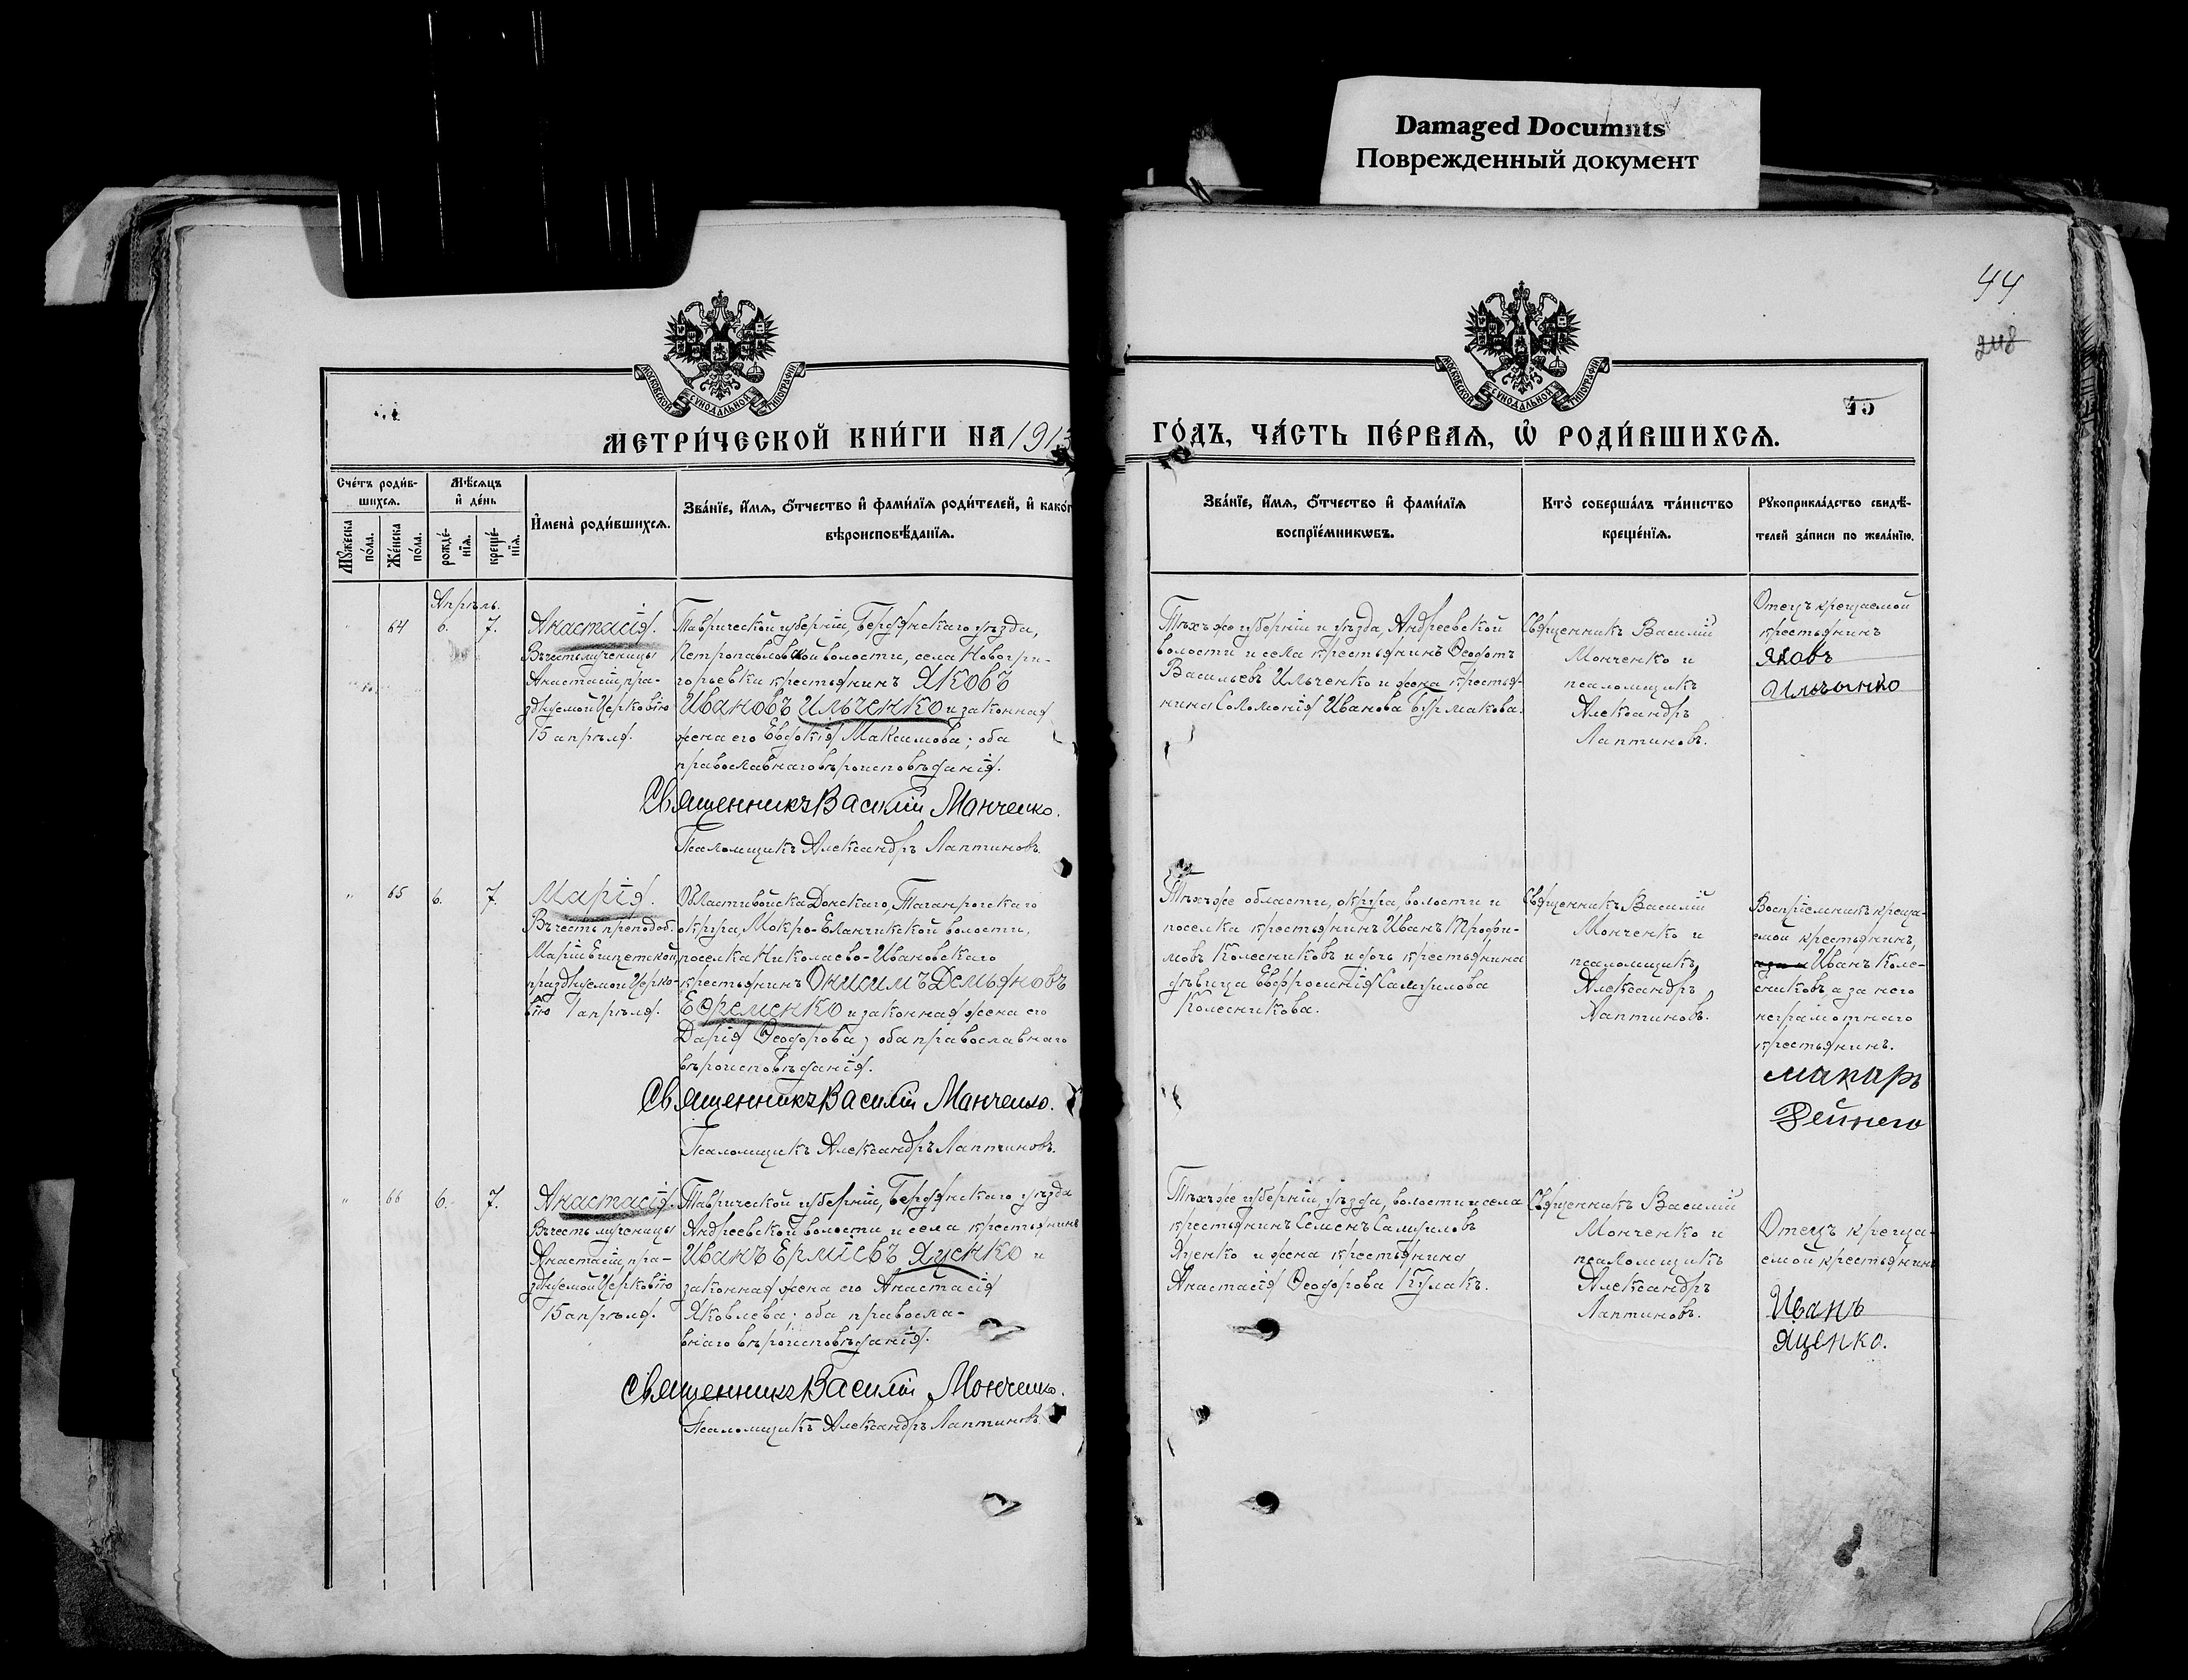 Damaged Documnts
Поврежденный документ
44
248
45
МОСКОВСКОЙ СУНОДАЛЬНОЙ ТИПОГРАФІИ
МОСКОВСКОЙ СУНОДАЛЬНОЙ ТИПОГРАФІИ
МЕТРИ́ЧЕСКОЙ КНИ́ГИ НА 1913
ГО́ДЪ, ЧА́СТЬ ПЕ́РВАЯ, Ѡ҆ РОДИ́ВШИХСЯ.
Сче́тъ роди́в-
шихся.
Мꙋ́жеска
по́ла.
Же́нска
по́ла.
Мѣ́сяцъ
и҆ де́нь
рожде́-
нїя.
креще́-
нїя.
И҆мена̀ роди́вшихся.
Зва́нїе, и҆́мя, ѻ҆́тчество и҆ фами́лїя роди́телей, и҆ како́г
вѣроисповѣ́данїя.
Зва́нїе, и҆́мя, ѻ҆́тчество и҆ фами́лїя
воспрїе́мникѡвъ.
Кто̀ соверша́лъ та́инство
креще́нїя.
Рꙋкоприкла́дство свидѣ́-
телей за́писи по жела́нїю.
Апрѣль.
" 64 6. 7.
Анастасія.
Въ честь мученицы
Анастасіи, пра-
зднуемой Церковію
15 апрѣля.
Таврической губерніи, Бердянскаго уѣзда,
Петропавловской волости, села Новогри-
горьевки крестьянинъ Яковъ
Ивановъ Ильченко и законная
жена его Евдокія Максимова; оба
православнаго вѣроисповѣданія.
Священникъ Василій Манченко.
Псаломщикъ Александръ Лаптиновъ.
Тѣхъ же губерніи и уѣзда, Андреевской
волости и села крестьянинъ Ѳеодотъ
Васильевъ Ильченко и жена крестья-
нина Соломонія Иванова Бурмакова.
Священникъ Василій
Монченко и
псаломщикъ
Александръ
Лаптиновъ.
Отецъ крещаемой
крестьянинъ
Яковъ
Ильчинко
" 65 6. 7.
Марія.
Въ честь преподоб.
Маріи Египетской
празднуемой Церко-
вію 1 апрѣля.
Области войска Донскаго, Таганрогскаго
округа, Мокро-Еланчикской волости,
поселка Николаево-Ивановскаго
крестьянинъ Онисимъ Демьяновъ
Ефременко и законная жена его
Дарія Ѳеодорова; оба православнаго
вѣроисповѣданія.
Священникъ Василій Манченко.
Псаломщикъ Александръ Лаптиновъ.
Тѣхъ же области, округа, волости и
поселка крестьянинъ Иванъ Трофи-
мовъ Колесниковъ и дочь крестьянина
дѣвица Евфросинія Самуилова
Колесникова.
Священникъ Василій
Монченко и
псаломщикъ
Александръ
Лаптиновъ.
Воспріемникъ креща-
емой крестьянинъ,
Иванъ Коле-
сниковъ, а за него
неграмотнаго
крестьянинъ.
Макаръ
" 66 6. 7.
Анастасія.
Въ честь мученицы
Анастасіи, пра-
зднуемой Церковію
15 апрѣля.
Таврической губерніи, Бердянскаго уѣзда
Андреевской волости и села крестьянинъ
Иванъ Ерміевъ Яценко и
законная жена его Анастасія
Яковлева; оба правосла-
внаго вѣроисповѣданія.
Священникъ Василій Монченко.
Псаломщикъ Александръ Лаптиновъ
Тѣхъ же губерніи, уѣзда, волости и села
крестьянинъ Семенъ Самуиловъ
Яценко и жена крестьянина
Анастасія Ѳеодорова Кулакъ.
Священникъ Василій
Монченко и
псаломщикъ
Александръ
Лаптиновъ.
Отецъ креща-
емой крестьянинъ
Иванъ
Яценко.